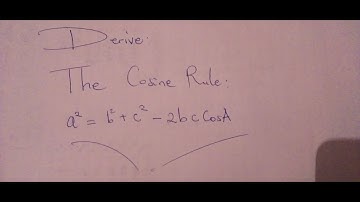 Derive:
The Cosine Rule:
a² = b² + c² - 2bc CosA